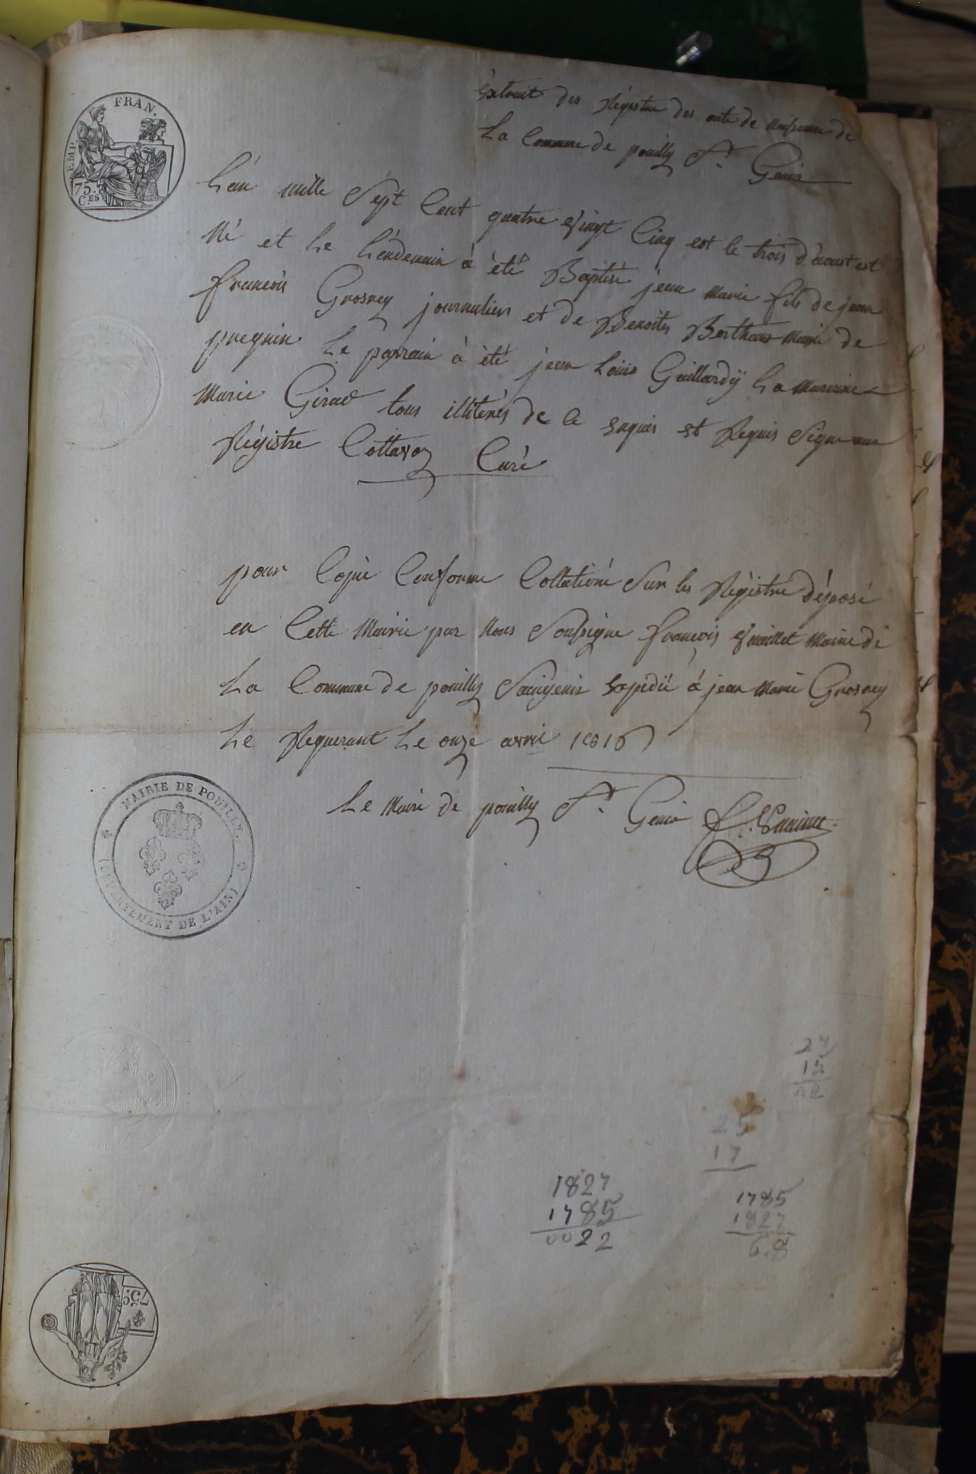 Extrait des Régistre des acte de naissance de
La Commune de pouilly St. Genis
L'an mille Sept Cent quatre Vingt Cinq est le trois d'aoust est
Né et Le Lendemain à été Baptisé jean Marie fils de jean
francois Grosrey journalier et de Benoite Berthans Marié de
pregnin Le parrain à été jean Louis Gaillardÿ La Marraine
Marie Girard tous illiterés de ce enquis et Requis Signe au
Régistre Cottavoz Curé
pour Copie Conforme Collationé Sur les Régistre déposé
en Cette Mairie par Nous Soussigne francois Maire de
La Commune de pouilly Saingenis Expedié à jean Marie Grosrey
Le Requerant Le onze avril 1816
Le Maire de pouilly St. Genis
EMP. FRAN.
75 Ces
MAIRIE DE POUILLY
(DÉPARTEMENT DE L'AIN)
25
17
1827
1785
0022
1785
1827
68
75